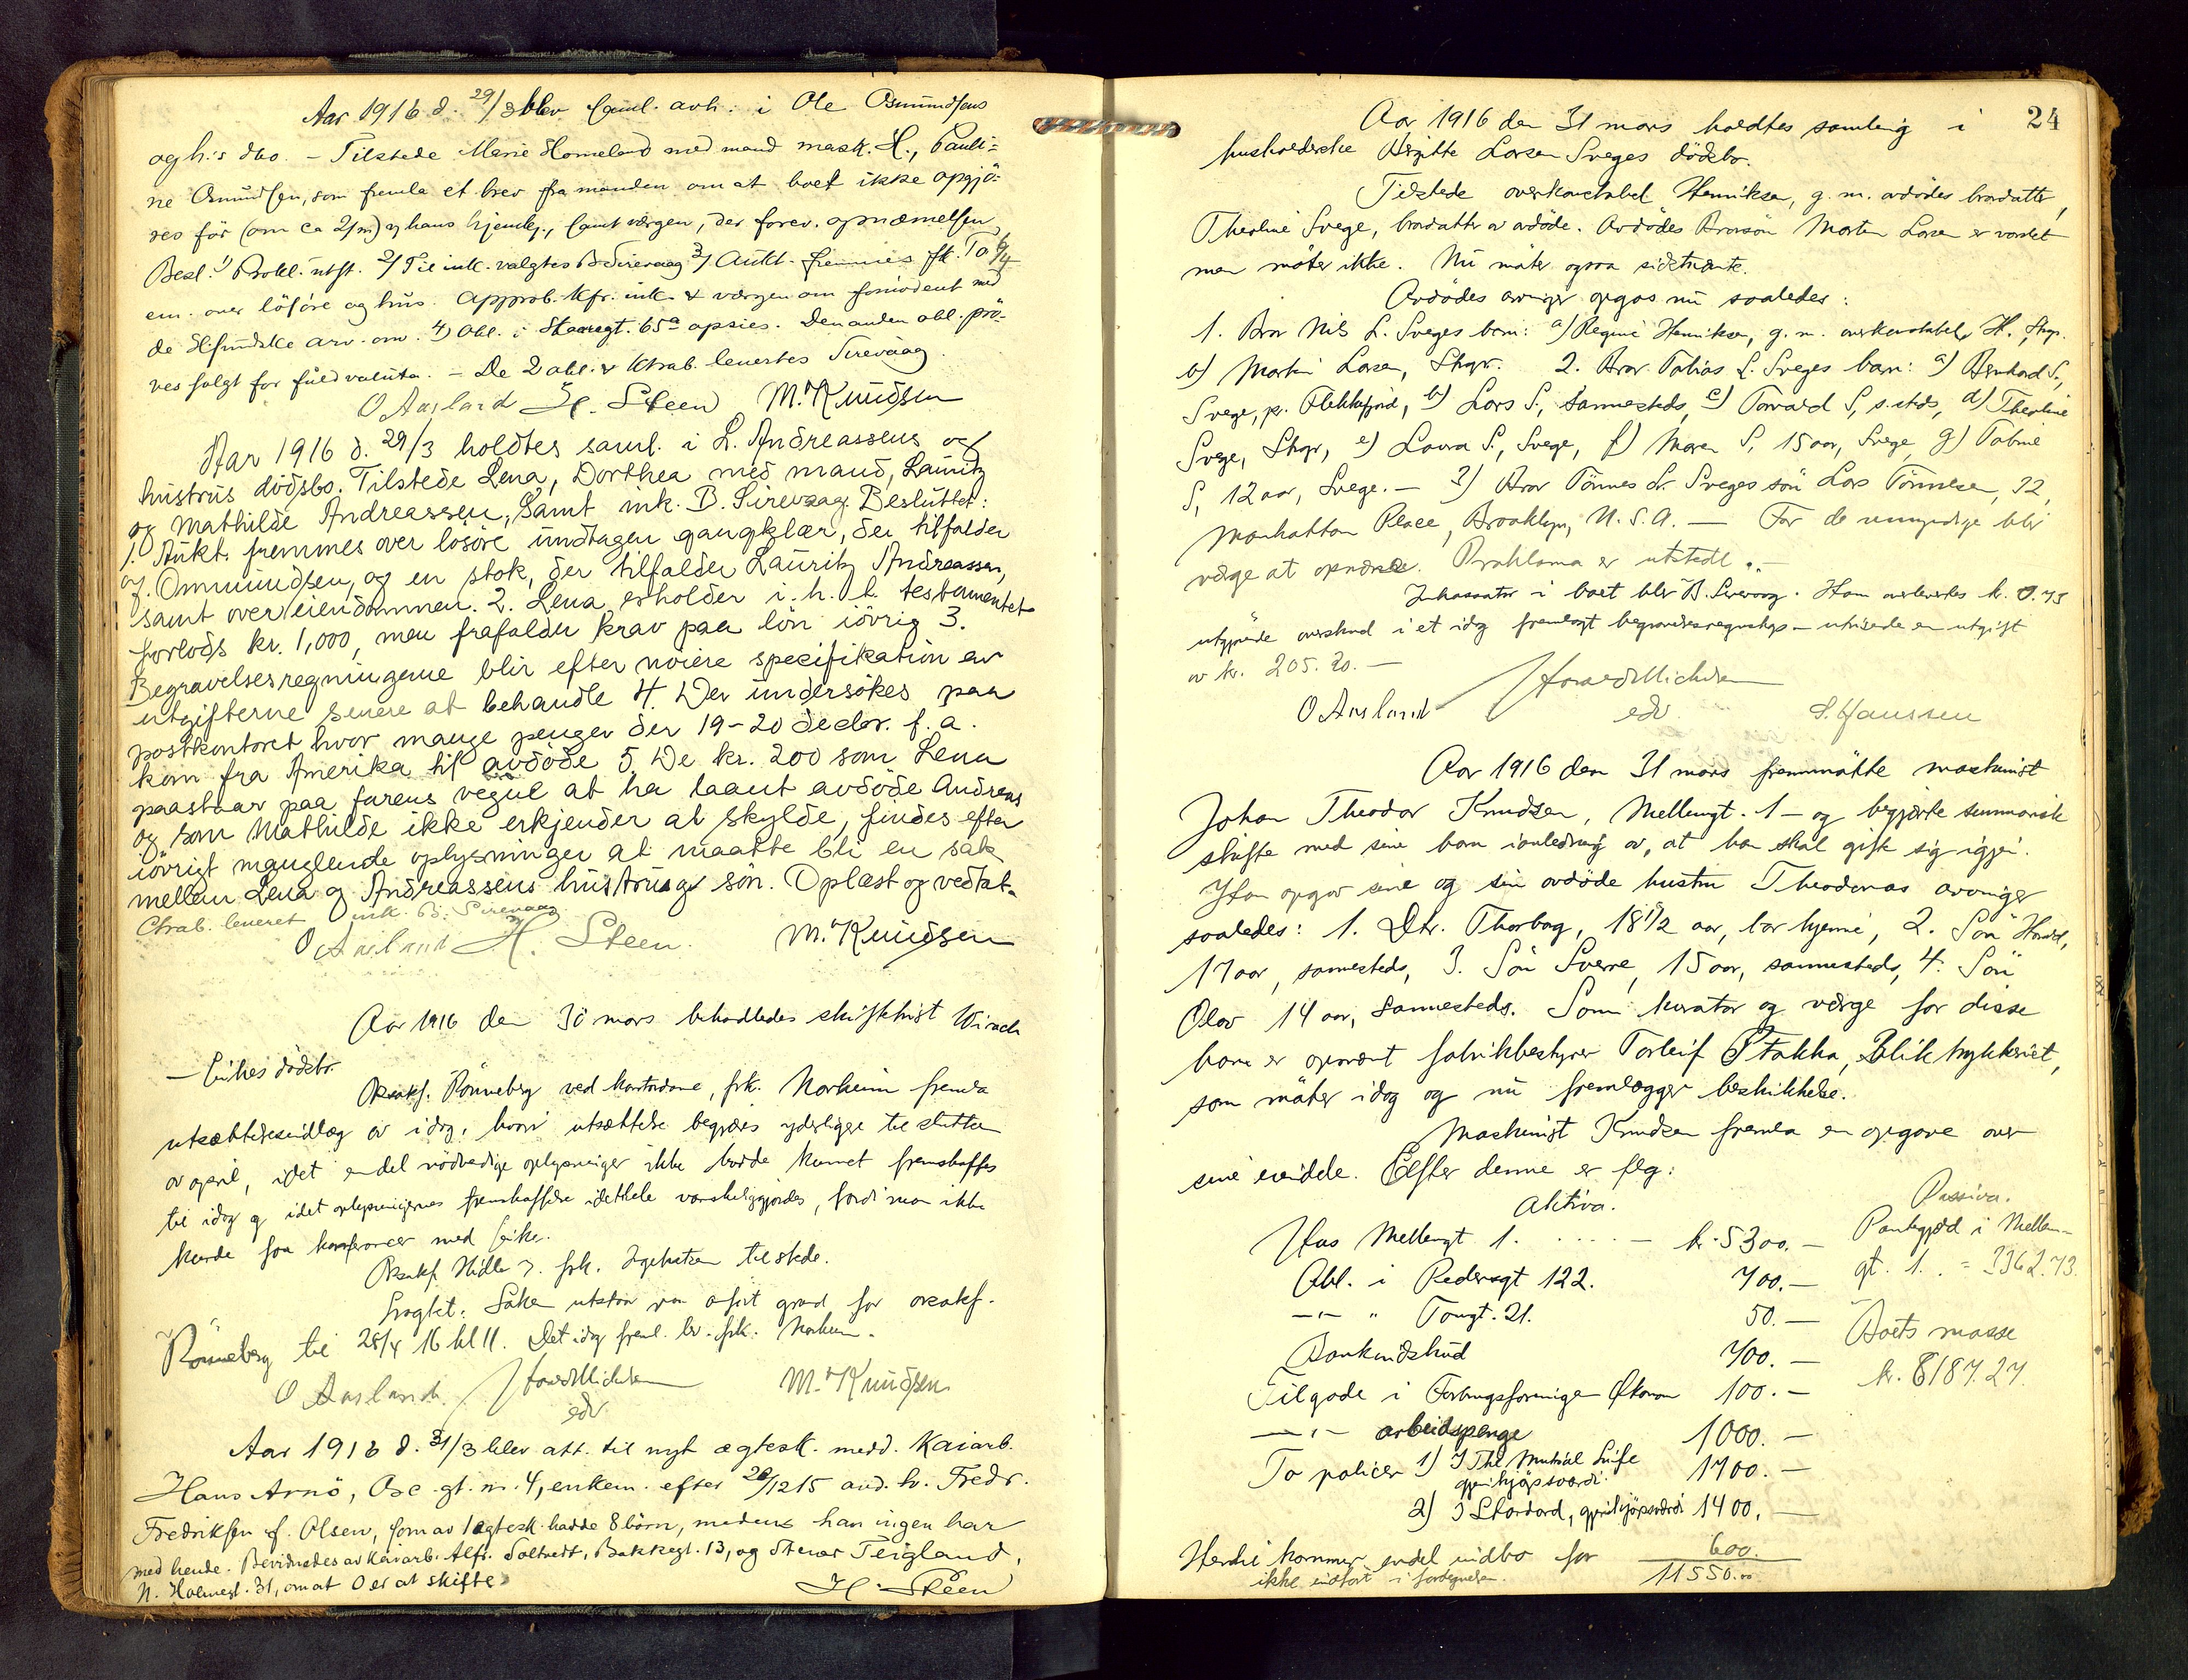 Aar 1916 d. 29/3 blev saml. avh. i Ole Osmundsens
og h:s dbo. - Tilstede Marie Homeland med mand mask. H., Pauli-
ne Osmundsen, som fremla et brev fra manden om at boet ikke opgjö-
res för (om ca 2/m) hans hjemk., samt værgen, der forev. opnæmelsen
Besl. 1) Prokl. utst. 2/ Til ink. valgtes B. Sirevaag 3/ Aukt. fremmes fk. To 6/4
em. over lösöre og hus. Approb. kfr. ink. & værgen om
de arv. om. 4) Obl. i Staaregt. 65a opsies. Den anden obl. prö-
ves solgt for fuld valuta. - De 2 obl. & ktrab. levertes Sirevaag.
O Aasland H. Steen M. Knudsen
Aar 1916 d. 29/3 holdtes saml. i L. Andreassens og
hustrus dödsbo. Tilstede Lena, Dorthea med mand, Lauritz
og Mathilde Andreassen, Samt ink. B. Sirevaag. Besluttet:
1. Aukt. fremmes over lösöre undtagen gangklær, der tilfalder
J. Ommundsen, og en stok, der tilfalder Lauritz Andreassen,
samt over eiendommen. 2. Lena erholder i. h. t. testamentet
forlods kr. 1,000, men frafalder krav paa lön iövrig 3.
Begravelsesregningerne blir efter nöiere spezifikation av
utgifterne senere at behandle 4. Der undersökes paa
postkontoret hvor mange penger der 19-20 decbr. f. a.
kom fra Amerika til avdöde 5. De kr. 200 som Lena
paastaar paa farens vegne at ha laant avdöde Andreas
og som Mathilde ikke erkjender at skylde, findes efter
iövrigt manglende oplysninger at maatte bli en sak
mellem Lena og Andreassens hustrus sön. Oplæst og vedtat.
Ctrab. leveret ink. B. Sirevaag
O Aasland H. Steen. M. Knudsen
Aar 1916 den 30 mars behandledes skifterist Winch
- Eikes dödsbo.
Oksakf. Rönneberg ved kontordame, frk. Norheim fremla
utsættelsesindlæg av idag, hvori utsættelse begjæres yderligere til slutten
av april, idet endel nödvendige oplysninger ikke hadde kunnet fremskaffes
til idag og idet oplysningernes fremskaffelse idethele vanskeliggjordes, fordi man ikke
kunde faa konferancer med Eike.
Oksakf. Hidle v. frk. Ingebretsen tilstede.
Fragkt: Saken utstaar paa anfört grund for oksakf.
Rönneberg til 28/4 16 kl 11. Det idag freml. lev. frk. Norheim.
O Aasland. M. Knudsen
edv
Aar 1916 d. 31/3 blev att. til nyt ægtesk. medd. Kaiarb.
Hans Arnö, Ose gt. nr. 4, enkem. efter 28/12 15 avd. hr. Fredr.
Fredriksen f. Olsen, som av 1 ægtesk. hadde 8 börn, medens han ingen har
med hende. Bevidnedes av kaiarb. Alfr. Soltvedt, Bakkegt. 13, og Stener Teigland,
N. Holmegt. 31, om at 0 er at skifte.
H. Steen
24
Aar 1916 den 31 mars holdtes samling i
husholderske Birgitte Larsen Sveges dödsbo.
Tilstede overkonstabel Henriksen, g. m. avdödes brordatter,
Theoline Svege, brordatter av avdöde. Avdödes Brorsön Martin Larsen er varslet
men möter ikke. Nu möter ogsaa sidstnævnte.
Avdödes arvinger opgas nu saaledes:
1. Bror Nils L. Sveges barn: a) Regine Henriksen, g. m. overkonstabel H., Stvgr.
b) Martin Larsen, Stvgr. 2. Bror Tobias L. Sveges barn: a) Bernhard S.,
Svege, pr. Flekkefjord, b) Lars S., sammesteds, c) Torvald S, s.steds, d) Theoline
Svege, Stvgr, e) Laura S., Svege, f) Maren S, 15 aar, Svege, g) Tobine
S, 12 aar, Svege. - 3) Bror Tönnes L. Sveges sön Lars Tönnesen, 32,
Manhattan Place, Brooklyn, U. S. A. - For de umyndige blir
værge at opnævne. Proklama er utstedt.-
Inkassator i boet blev B. Sirevaag. Ham overlevertes kr. 0.75
utgjörende overskud i et idag fremlagt begravelsesregnskap - utvisende en utgift
av kr. 205.20. -
O Aasland
edv S. Hanssen
Aar 1916 den 31 mars fremmötte maskinist
Johan Theodor Knudsen, Mellemgt. 1 - og begjærte summarisk
skifte med sine barn i anledning av, at han skal gifte sig igjen.
Han opgav sine og sin avdöde hustru Theodoras arvinger
saaledes: 1. Dtr. Thorborg, 18 1/2 aar, bor hjemme, 2. Sön Harald,
17 aar, sammesteds, 3. Sön Sverre, 15 aar, sammesteds, 4. Sön
Olav 14 aar, sammesteds. Som kurator og værge for disse
barn er opnævnt fabrikbestyrer Torleif Stakka, Bliktrykkeriet,
som möter idag og nu fremlægger beskikkelse.
Maskinist Knudsen fremla en opgave over
sine eiendele. Efter denne er flg:
Aktiva. Passiva.
Hus Mellemgt 1. . . . . - kr. 5300. - Pantegjæld i Mellem-
Obl. i Pedersgt 122. 700. - gt. 1. . = 3362.73.
-"- " Tougt. 21. 50. - Boets masse
Bankindskud 700. - kr. 8187.27
Tilgode i Forbrugsforeningen Ökonom 100. -
-"- arbeidspenge 1000. -
To policer 1) I The Mutual Life 1700. -
gjenkjöpsværdi.
2) I Standard, gjenkjöpsværdi 1400. -
Hertil kommer endel indbo for 600.
ikke indfört i fortegnelsen. 11550.00